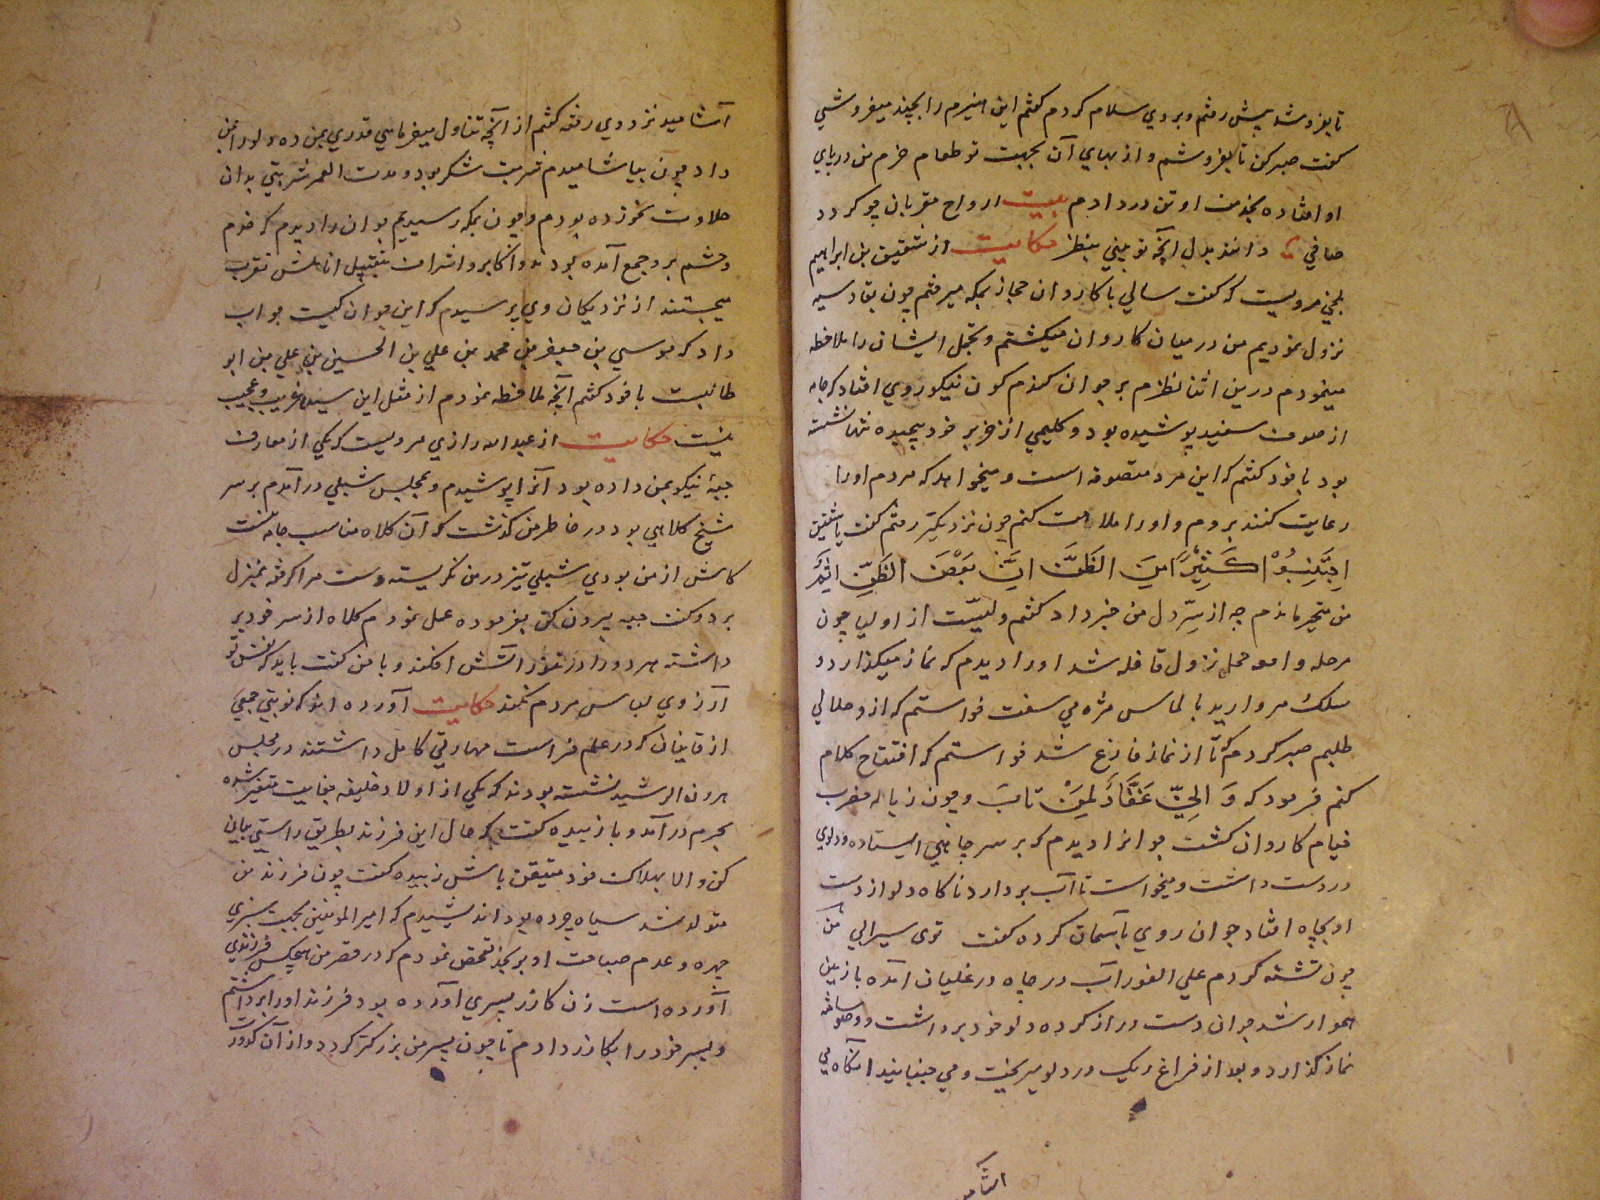 تا بفروشد پیش رفتم و بر وي سلام کردم گفتم این هیزم را بچند میفروشي
گفت صبر کن تا بفروشم و از بهاي آن بجهت تو طعام خرم من در پاي
او افتاده بخدمت او تن در دادم بیت ارواح مقربان چو گردد
صافي دانند بدل آنچه تو بیني بنظر حکایت از شقیق بن ابراهیم
بلخي مرویست که گفت سالي با کاروان حجاز بمکه میرفتم چون بقادسیه
نزول نمودیم من در میان کاروان میگشتم و تجمل ایشان را ملاحظه
مینمودم درین اثنا نظرم بر جوان گندم گون نیکوروي افتاد که جامه
از صوف سفید پوشیده بود و گلیمي از خز بر خود پیچیده تنها نشسته
بود با خود گفتم که این مرد متصوفه است و میخواهد که مردم او را
رعایت کنند بروم و او را ملامت کنم چون نزدیکتر رفتم گفت یا شقیق
اِجتَنِبُوْا کَثِیْرًا مِنَ الظَنَّ اِنَّ بَعْضَ الظَنّ اثم
من متحیر ماندم چه از سِرّ دل من خبر داد گفتم ولیست از اولیا چون
مرحله واصه محل نزول قافله شد او را دیدم که نماز میگذارد و
سلک مروارید بالماس مژه مي سفت خواستم که ازو حلالي
طلبم صبر کردم تا از نماز فارغ شد خواستم که افتتاح کلام
کنم فرمود که وَ اِنِيّ غَفَّارٌ لِمَنْ تابَ و چون زباله مضرب
خیام کاروان گشت جوانرا دیدم که بر سر چاهي ایستاده و دلوي
در دست داشت و میخواست تا آب بردارد ناگاه دلو از دست
او بچاه افتاد جوان روي بآسمان کرده گفت توي سیرابي من
چون تشنه گردم علي الفور آب در چاه در غلیان آمده با زمین
هموار شد جوان دست دراز کرده دلو خود برداشت و وضو ساخته
نماز گذارد و بعد از فراغ ریگ در دلو میریخت و مي جنبانید آنگاه مي
آشامید
آشامید نزد وي رفته گفتم از آنچه تناول میفرمایي قدري بمن ده دلو را بمن
داد چون بیاشامیدم شربت شکر بود و مدت العمر شربتي بدان
حلاوت نخورده بودم و چون بمکه رسیدیم جوان را دیدم که خدم
و حشم برو جمع آمده بودند و اکابر و اشراف بتقبیل اناملش تقرب
میجستند از نزدیکان وي پرسیدم که این جوان کیست جواب
داد که موسي بن جعفر بن محمد بن علي بن الحسین بن علي بن ابو
طالبست با خود گفتم آنچه ملاحظه نمودم از مثل این سید غریب و عجیب
نیست حکایت از عبدالله رازي مرویست که یکي از معارف
جبهٔ نیکو بمن داده بود آنرا پوشیدم و بمجلس شبلي درآمدم بر سر
شیخ کلاهي بود در خاطر من گذشت که آن کلاه مناسب جامه منست
کاش از من بودي شبلي تیز در من نگریسته دست مرا گرفته بمنزل
برد و گفت جبه بیرون کن بفرموده عمل نمودم کلاه از سر خود بر
داشته هر دو را در تنور آتش افکند و با من گفت باید که نفس تو
آرزوي لباس مردم نکند حکایت آورده اند که نوبتي جمعي
از قایفان که در علم فراست مهارتي کامل داشتند در مجلس
هرون الرشید نشسته بودند که یکي از اولاد خلیفه بغایت متغیر شده
بحرم درآمد و با زبیده گفت که حال این فرزند بطریق راستي بیان
کن و الا بهلاکت خود متیقن باش زبیده گفت چون فرزند من
متولد شد سیاه چرده بود اندیشیدم که امیرالمومنین بجهت سبزي
چهره و عدم صباحت او برنجد تفحص نمودم که در قصر من هیچکس فرزندي
آورده است زن گازر پسري آورده بود فرزند او را برداشتم
و پسر خود را بگازر دادم تا چون پسر من بزرگتر گردد و از آن کدورت